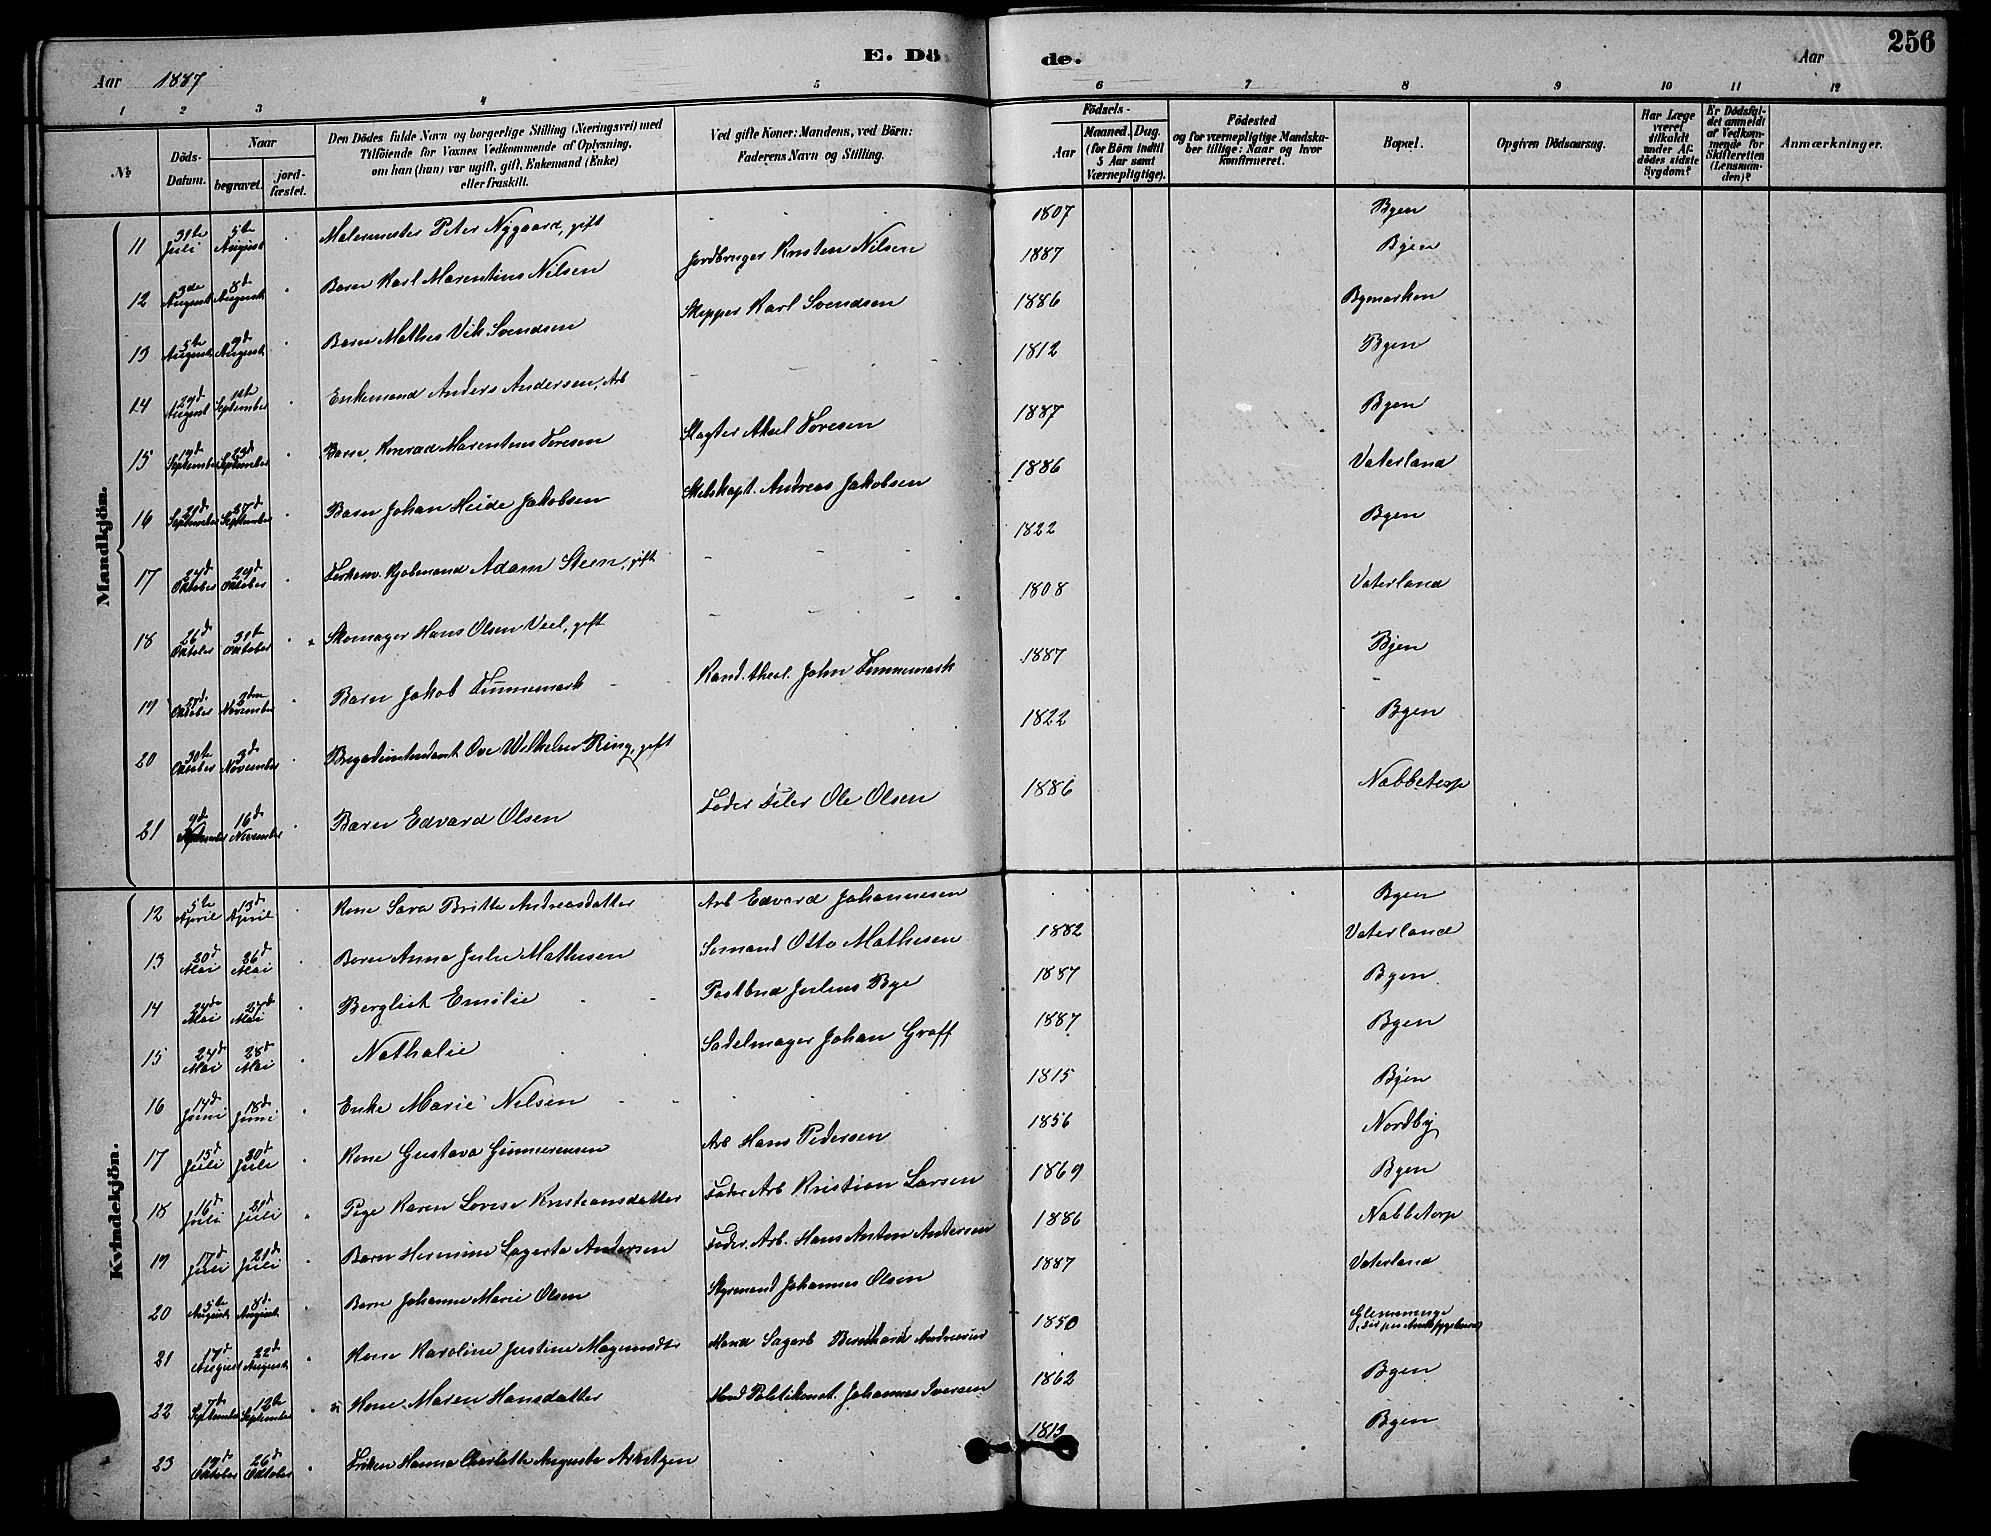 E. Döde.
256
Aar 1887
Aar
1 2 3 4 5 6 7 8 9 10 11 12
№
Döds-Datum.
Naar
begravet.
jord-fæstet.
Den Dödes fulde Navn og borgerlige Stilling (Næringsvei) med Tilföiende for Voxnes Vedkommende af Oplysning, om han (hun) var ugift, gift, Enkemand (Enke) eller fraskilt.
Ved gifte Koner: Mandens, ved Börn: Faderens Navn og Stilling.
Födsels-
Aar
Maaned. Dag.
(for Börn indtil 5 Aar samt Værnepligtige).
Födested og for værnepligtige Mandskaber tillige: Naar og hvor konfirmeret.
Bopæl.
Opgiven Dödsaarsag.
Har Læge været tilkaldt under Afdödes sidste Sygdom?
Er Dödsfaldet anmeldt af Vedkommende for Skifteretten (Lensmanden)?
Anmærkninger.
Mandkjön.
11 31te Juli 5te August Malermester Peter Nygaard, gift 1807 Byen
12 3de August 8d August Barn Karl Marentius Nilsen Jordbruger Kristen Nilsen 1887 Byen
13 5te August 9d August Barn Mathes Vik Svendsen Skipper Karl Svendsen 1886 Bymarken
14 29d August September Enkemand Anders Andersen, Arb 1812 Byen
15 19d September 23d September Barn Konrad Marentius Toresen Slagter Aksel Toresen 1887 Byen
16 21d September 27d September Barn Johan Heide Jakobsen Skibskapt. Andreas Jakobsen 1886 Vaterland
17 24d Oktober 29d Oktober Kjøbmand Adam Steen, gift 1822 Byen
18 26d Oktober 31te Oktober Skomager Hans Olsen Veel, gift 1808 Vaterland
19 Oktober November Barn Jakob Tinnemark Kand. theol. John Tinnemark 1887 Byen
20 30te Oktober 3d November Brigadeintendant Ove Wilhelm Ring, gift 1822 Byen
21 9d November 16d November Barn Edvard Olsen Fader Filer Ole Olsen 1886 Nabbetorp
Kvindekjön.
12 5te April 13d April Kone Sara Britta Andreasdatter Arb Edvard Johannesen Byen
13 20d Mai 26d Mai Barn Anna Julie Mathesen Sømand Otto Mathesen 1882 Vaterland
14 24de Mai 27d Mai Bergliot Emilie Postbud Julius Bye 1887 Byen
15 24d Mai 28d Mai Nathalie Sadelmager Johan Graff 1887 Byen
16 14d Juni 18d Juni Enke Marie Nilsen 1815 Byen
17 15d Juli 20d Juli Kone Gustava Gunnerensen Arb Hans Pedersen 1856 Nordby
18 16d Juli 21d Juli Pige Karen Lovise Kristiansdatter Fader Arb Kristian Larsen 1869 Byen
19 17d Juli 21d Juli Barn Hermine Lagerta Andersen Fader. Arb. Hans Anton Andersen 1886 Nabbetorp
20 5te August 8d August Barn Johanne Marie Olsen Styrmand Johannes Olsen 1887 Vaterland
21 17d August 22d August Kone Karoline Justine Magnusdtr Mand Sagarb Bernhard Andersen 1850 Glemminge
22 7d September 12te September Kone Maren Hansdatter Mand Politikonst. Johannes Iversen 1862 Byen
23 19d Oktober 26d Oktober Frøken Hanna Charlotte Augusta 1813 Byen